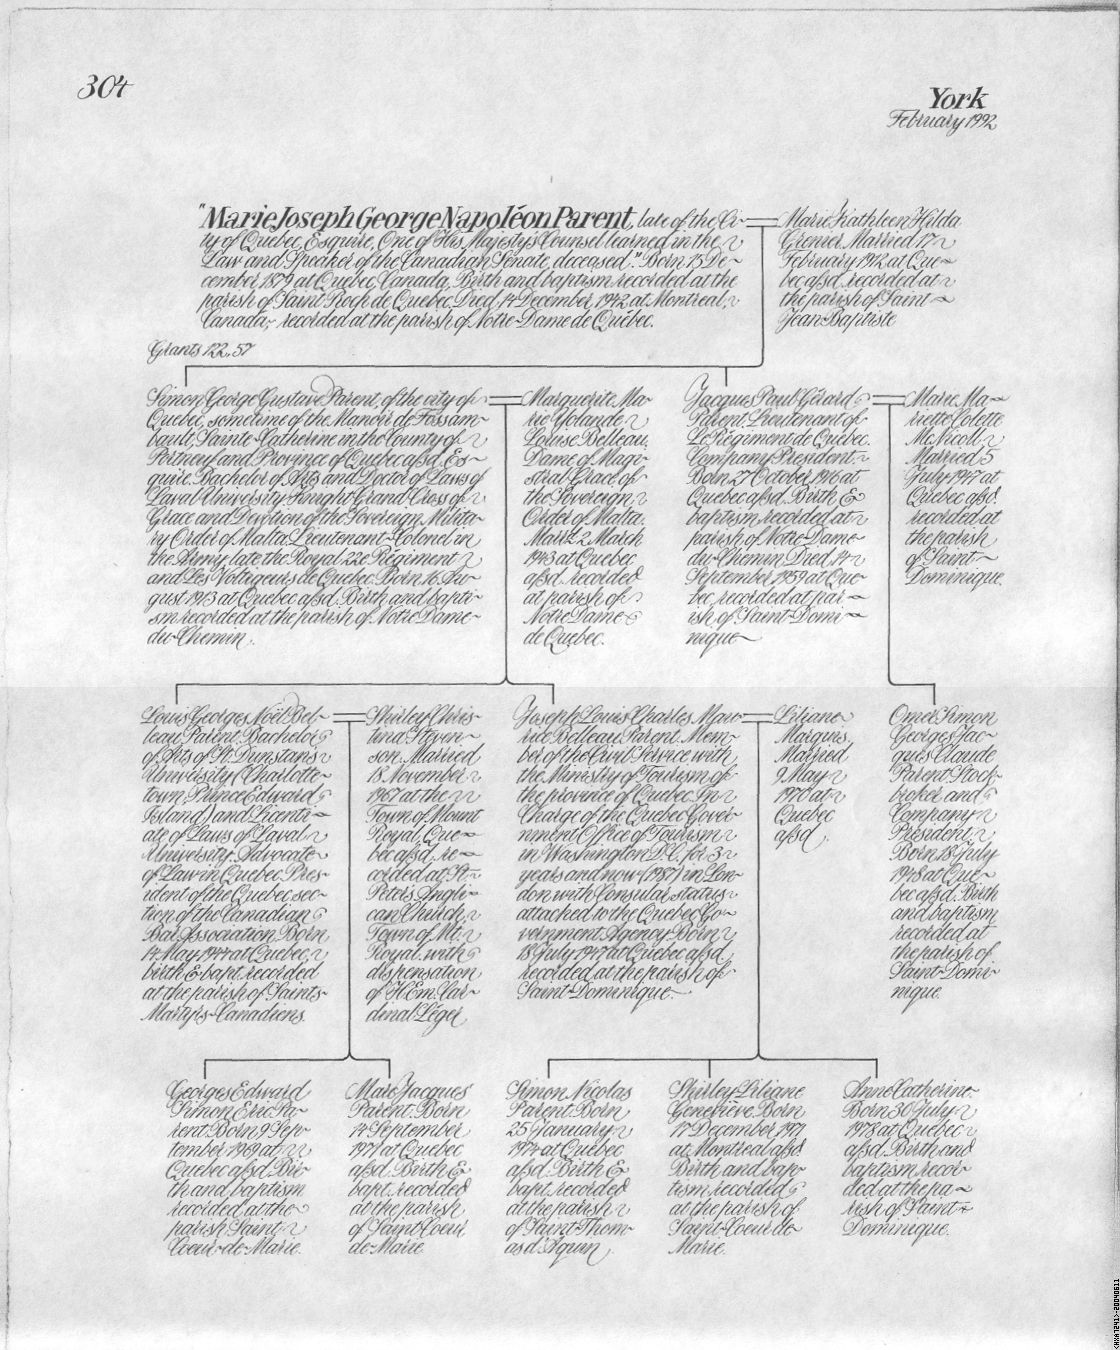 304
York
February 1992
"Marie Joseph George Napoléon Parent, late of the Ci-
ty of Quebec, Esquire, One of His Majesty's Counsel learned in the
Law and Speaker of the Canadian Senate, deceased." Born 15 De-
cember 1879 at Quebec, Canada, Birth and baptism recorded at the
parish of Saint Roch de Quebec, Died 14 December 1942 at Montreal,
Canada, recorded at the parish of Notre-Dame de Québec.
Marie Kathleen Hilda
Grenier. Married 17
February 1912 at Que-
bec afsd. recorded at
the parish of Saint
Jean Baptiste
Grants 122, 57
Simon George Gustave Parent, of the city of
Quebec, sometime of the Manoir de Fossam-
bault, Sainte-Catherine in the County of
Portneuf and Province of Quebec afsd, Es-
quire. Bachelor of Arts and Doctor of Laws of
Laval University, Knight Grand Cross of
Grace and Devotion of the Sovereign Milita-
ry Order of Malta, Lieutenant-Colonel in
the Army, late the Royal 22e Régiment
and Les Voltigeurs de Quebec. Born 16 Au-
gust 1913 at Quebec afsd. Birth and bapti-
sm recorded at the parish of Notre Dame-
du-Chemin.
Marguerite Ma-
rie Yolande
Louise Belleau,
Dame of Magi-
stral Grace of
the Sovereign
Order of Malta.
Marrd 2 March
1943 at Quebec
afsd. recorded
at parish of
Notre Dame
de Quebec.
Jacques Paul Gérard
Parent, Lieutenant of
Le Régiment de Quebec.
Company President.
Born 27 October 1916 at
Quebec afsd. Birth &
baptism recorded at
parish of Notre-Dame-
du-Chemin Died 14
September 1959 at Que-
bec, recorded at par-
ish of Saint-Domi-
nique
Marie Ma-
riette Colette
McNicoll
Married 5
July 1947 at
Quebec afsd.
recorded at
the parish
of Saint-
Dominique.
Louis Georges Noël Bel-
leau Parent. Bachelor
of Arts of St. Dunstan's
University (Charlotte-
town Prince Edward
Island) and Licenti-
ate of Laws of Laval
University. Advocate
of Law in Quebec. Pres-
ident of the Quebec sec-
tion of the Canadian
Bar Association. Born
14 May 1944 at Quebec,
birth & bapt. recorded
at the parish of Saints-
Martyrs-Canadiens.
Shirley Chris-
tina Steven-
son. Married
18 November
1967 at the
Town of Mount
Royal, Que-
bec afsd. re-
corded at St.
Peter's Angli-
can Church,
Town of Mt.
Royal, with
dispensation
of H. Em. Car-
dinal Léger
Joseph Louis Charles Mau-
rice Belleau Parent. Mem-
ber of the Civil Service with
the Ministry of Tourism of
the province of Quebec. In
Charge of the Quebec Gover-
nment Office of Tourism
in Washington D.C. for 3
years and now (1987) in Lon-
don with Consular status
attached to the Quebec Go-
vernment Agency. Born
18 July 1947 at Quebec afsd.
recorded at the parish of
Saint-Dominique
Liliane
Marquis.
Married
9 May
1970 at
Quebec
afsd.
Omer Simon
Georges Jac-
ques Claude
Parent Stock-
broker and
Company
President.
Born 18 July
1948 at Que-
bec afsd. Birth
and baptism
recorded at
the parish of
Saint-Domi-
nique.
Georges Edward
Simon Eric Pa-
rent. Born 9 Sep-
tember 1969 at
Quebec afsd. Bir-
th and baptism
recorded at the
parish Saint
Coeur-de-Marie.
Marc Jacques
Parent. Born
14 September
1971 at Quebec
afsd. Birth &
bapt. recorded
at the parish
of Saint Coeur
de-Marie
Simon Nicolas
Parent. Born
25 January
1974 at Quebec
afsd. Birth &
bapt. recorded
at the parish
of Saint-Thom-
as d'Aquin
Shirley Liliane
Geneviève. Born
17 December 1971
at Montreal afsd
Birth and bap-
tism recorded
at the parish of
Saint-Coeur de-
Marie.
Anne Catherine.
Born 30 July
1978 at Quebec
afsd. Birth and
baptism recor-
ded at the pa-
rish of Saint-
Dominique.